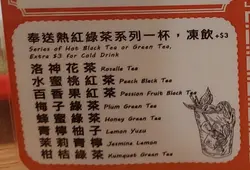 奉送熱紅綠茶系列一杯，凍飲+$3
Series of Hot Black Tea or Green Tea,
Extra $3 for Cold Drink
洛神花茶 Roselle Tea
水蜜桃紅茶 Peach Black Tea
百香果紅茶 Passion Fruit Black Tea
梅子綠茶 Plum Green Tea
蜂蜜綠茶 Honey Green Tea
青檸柚子 Lemon Yuzu
茉莉青檸 Jasmine Lemon
柑桔綠茶 Kumquat Green Tea